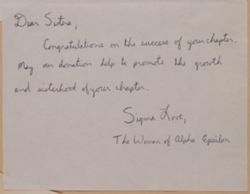 Dear Sisters,
Congratulations on the success of your chapter.
May our donation help to promote the growth
and sisterhood of your chapter.
Sigma Love,
The Women of Alpha Epsilon